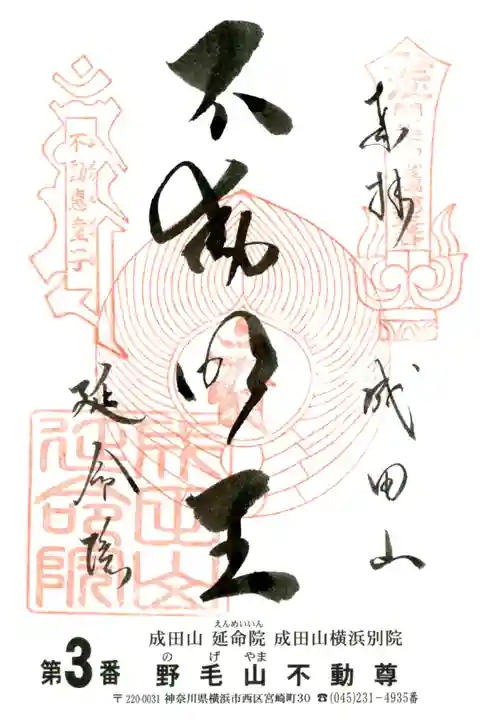 奉拝
成田山
不動明王
延命院
成田山
延命院
えんめいいん
成田山 延命院 成田山横浜別院
のげやま
第3番 野毛山不動尊
〒220-0031 神奈川県横浜市西区宮崎町30 ☎(045)231-4935番